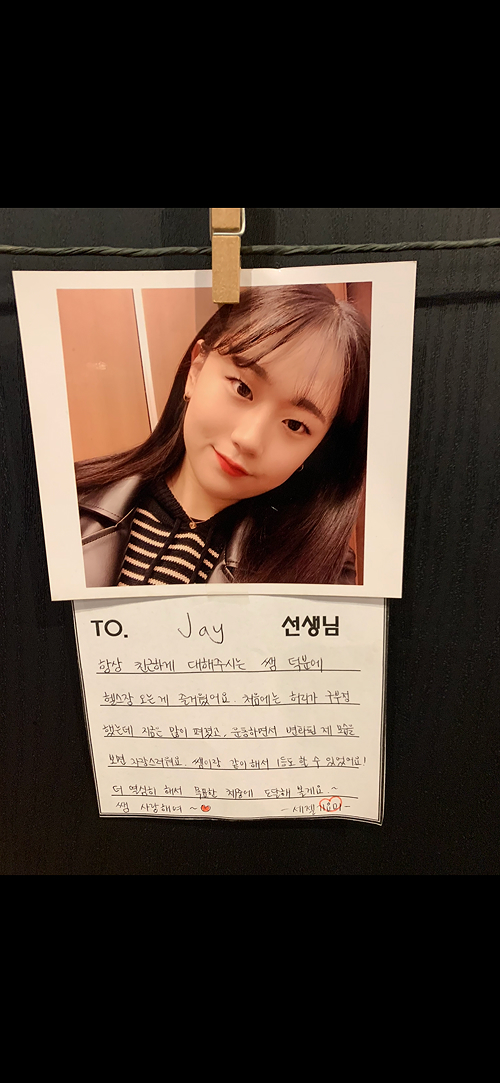 TO. Jay 선생님
항상 친근하게 대해주시는 쌤 덕분에
헬스장 오는게 즐거웠어요. 처음에는 허리가 구부정
했는데 지금은 많이 펴졌고, 운동하면서 변화된 제 모습을
보면 자랑스러워요. 쌤이랑 같이해서 1등도 할 수 있었어요!
더 열심히 해서 목표한 체중에 도달해 볼게요.^
쌤 사랑해여 ~ ♥ - 세젤 기요미 -